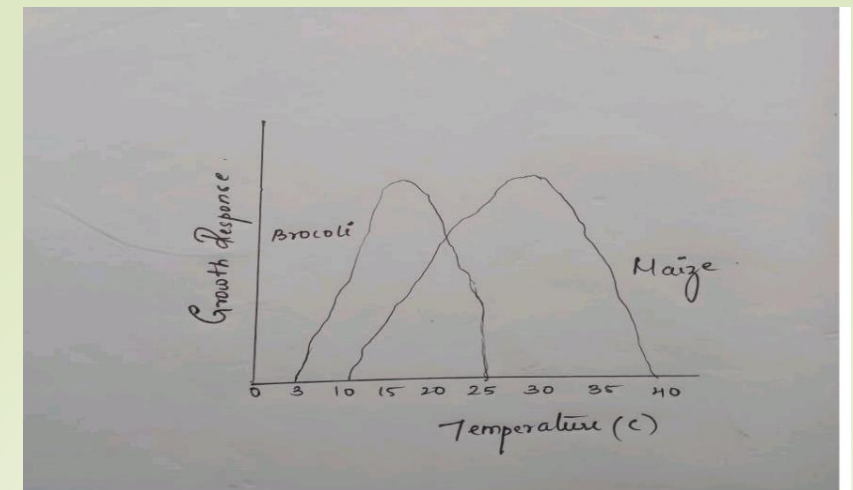 Growth Response.
Brocoli
Maize
0 3 10 15 20 25 30 35 40
Temperature (C)